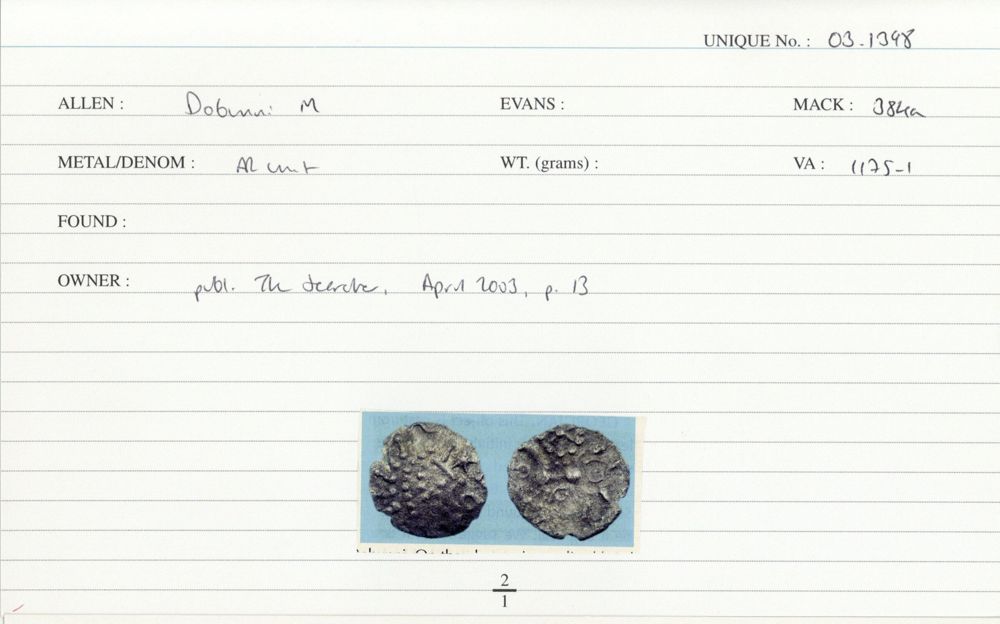 UNIQUE No. : 03.1398
ALLEN : Dobunni M EVANS : MACK : 384a
METAL/DENOM : AR unit WT. (grams) : VA : 1175-1
FOUND :
OWNER : publ. The Searcher, April 2003, p. 13
2
1